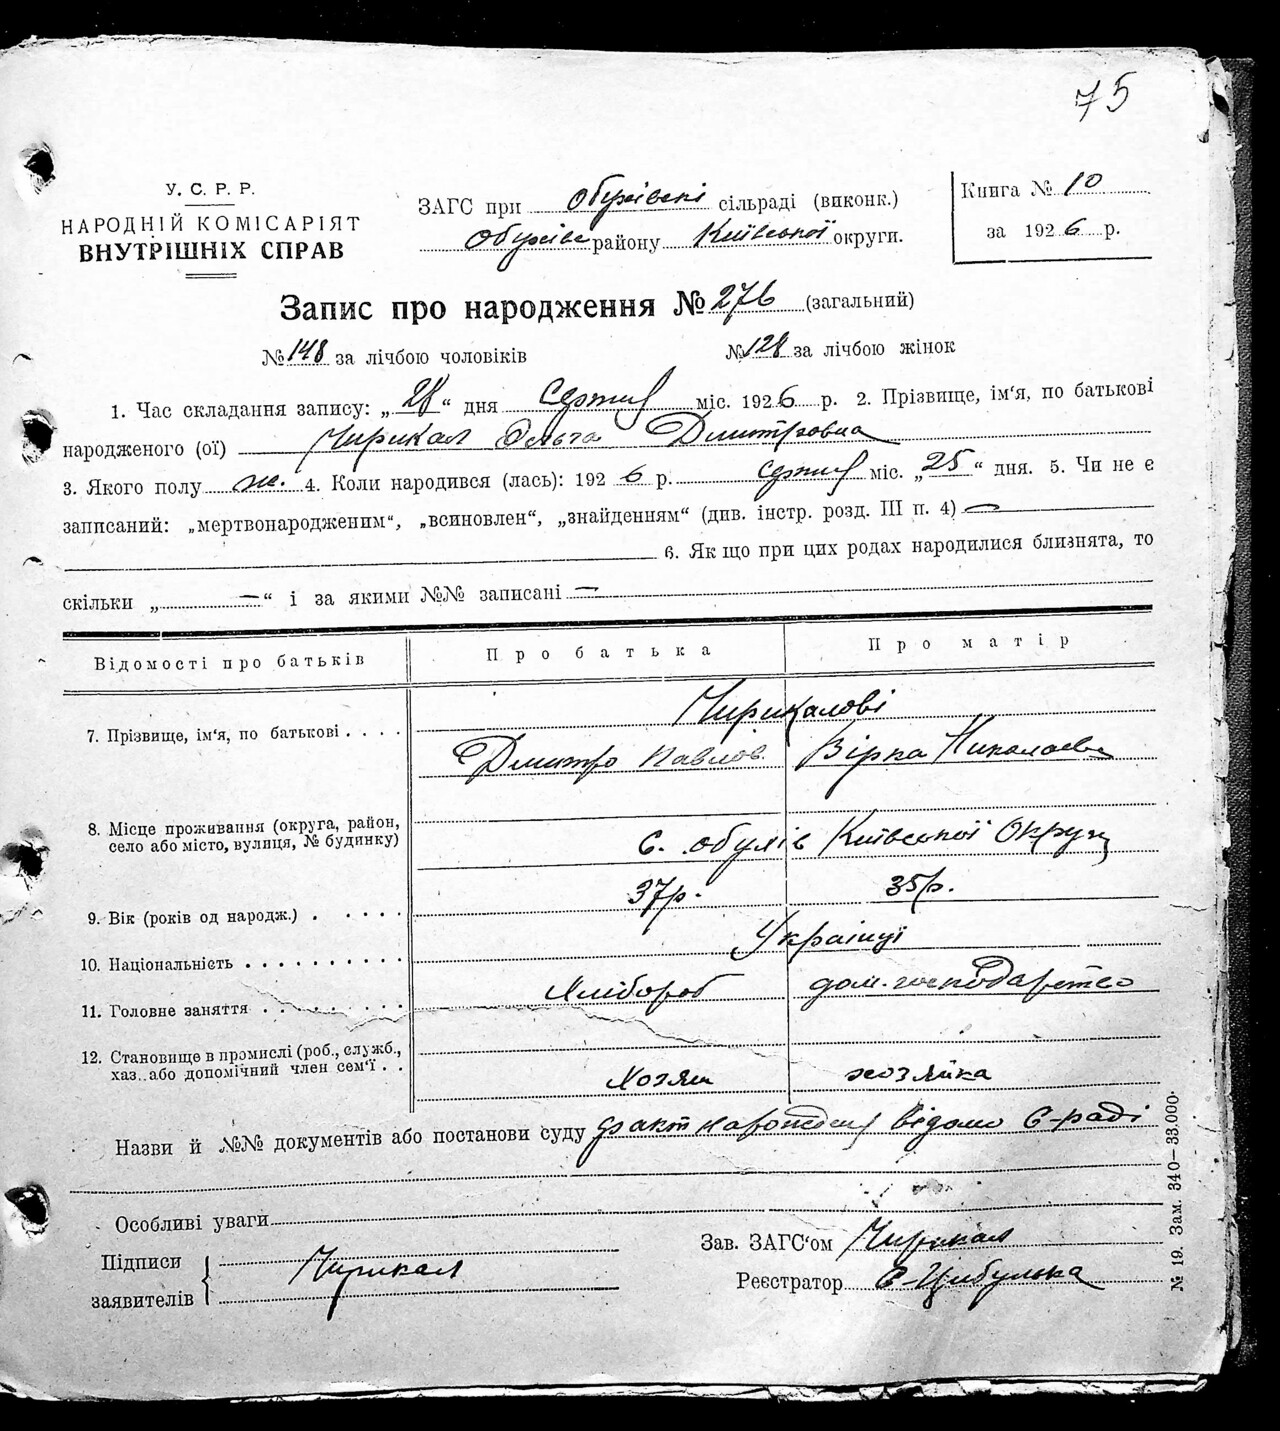 75
У. С. Р. Р.
НАРОДНІЙ КОМІСАРІЯТ
ВНУТРІШНІХ СПРАВ
ЗАГС при Обухівскі сільраді (виконк.)
Обухівс району Київської округи.
Книга № 10
за 1926 р.
Запис про народження № 276 (загальний)
№ 148 за лічбою чоловіків № 128 за лічбою жінок
1. Час складання запису: „28“ дня міс. 1926 р. 2. Прізвище, ім‘я, по батькові
народженого (ої) Чирикал Ольга Дмитровна
3. Якого полу ж. 4. Коли народився (лась): 1926 р. міс. „25“ дня. 5. Чи не є
записаний: „мертвонародженим“, „всиновлен“, „знайденням“ (див. інстр. розд. III п. 4) —
6. Як що при цих родах народилися близнята, то
скільки „—“ і за якими №№ записані —
Відомості про батьків Про батька Про матір
7. Прізвище, ім‘я, по батькові . . . . Чирикалові
Дмитро Павлов. Вірка Николаевн
8. Місце проживання (округа, район,
село або місто, вулиця, № будинку) С. Обухів Київської Округи
9. Вік (років од народж.) . . . . . 37р. 35р.
10. Національність . . . . . . . . . . Українці
11. Головне заняття . . . . . . . . Хлібороб дом. господарство
12. Становище в промислі (роб., служб.,
хаз. або допомічний член сем‘ї . . Хозяин хозяйка
Назви й №№ документів або постанови суду факт народження відомо С-раді
Особливі уваги
Підписи
заявителів
Чирикал
Зав. ЗАГС‘ом Чирикал
Реєстратор С-Цибулька
№ 19. Зам. 340—33.000.